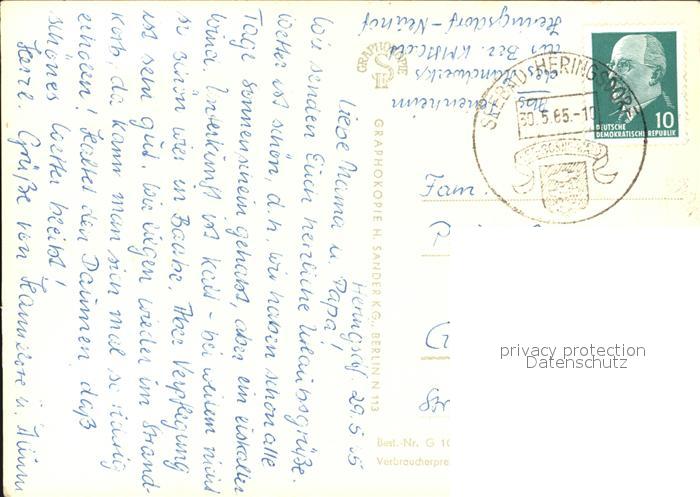 Heringsdf. 29.5.65
Liebe Mama u. Papa!
Wir senden Euch herzliche Urlaubsgrüße.
Wetter ist schön, d.h. wir haben schon alle
Tage Sonnenschein gehabt, aber ein eiskalter
Wind. Unterkunft ist kalt - bei weitem nicht
so schön wie in Baabe. Aber Verpflegung
ist sehr gut. Wir liegen wieder im Strand-
korb, da kann man sich mal so richtig
erholen! Haltet den Daumen, daß
schönes Wetter bleibt!
Herzl. Grüße von Hannelore u.
Abs.
des Handwerks
Heringsdorf-Neuhof
GRAPHOKOPIE
GRAPHOKOPIE H. SANDER KG., BERLIN N 113
Best.-Nr. G 10
Verbraucherpre
SEEBAD HERINGSDORF
30.5.65.-10
10
DEUTSCHE
DEMOKRATISCHE REPUBLIK
Fam.
privacy protection
Datenschutz